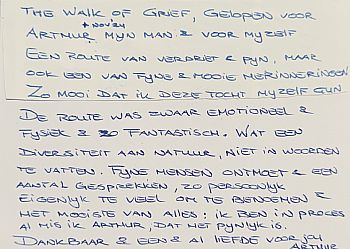 The Walk of Grief, gelopen voor
+ Nov/24
Arthur, myn man & voor myzelf
Een route van verdriet & pyn, maar
ook een van fyne & mooie herinneringen
Zo mooi dat ik deze tocht myzelf gun
De route was zwaar emotioneel &
fysiek & zo fantastisch. Wat een
diversiteit aan natuur, niet in woorden
te vatten. Fyne mensen ontmoet & een
aantal gesprekken, zo persoonlyk
eigenlyk te veel om te benoemen &
het mooiste van alles: ik ben in proces
al mis ik Arthur, dat het pynlyk is.
Dankbaar & een & al liefde voor jou
Arthur